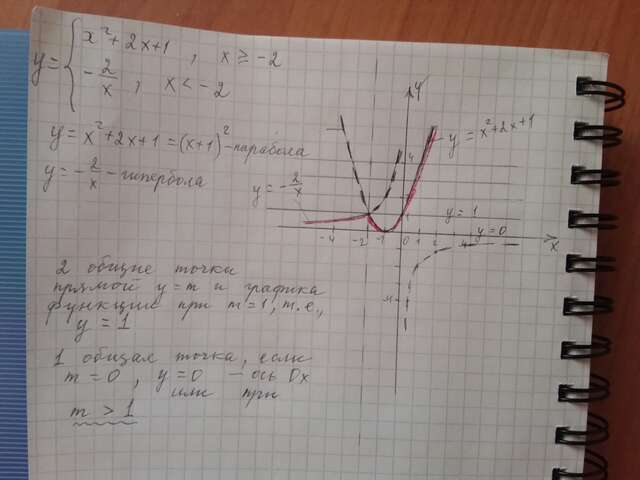 y = { x² + 2x + 1 , x ≥ -2
- 2/x , x < -2
y = x² + 2x + 1 = (x+1)² - парабола
y = - 2/x - гипербола
y
y = x² + 2x + 1
4
y = - 2/x
1
y = 1
-4 -2 -1 0 2 4
y = 0
x
-4
2 общие точки
прямой y = m и графика
функций при m = 1, т.е.,
y = 1
1 общая точка, если
m = 0, y = 0 - ось Ox
или при
m > 1